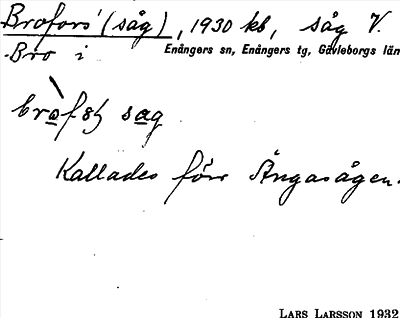 Brofors (såg), 1930 kb, såg V.
Bro i Enångers sn, Enångers tg, Gävleborgs län
sag
Kallades förr Ångasågen.
LARS LARSSON 1932